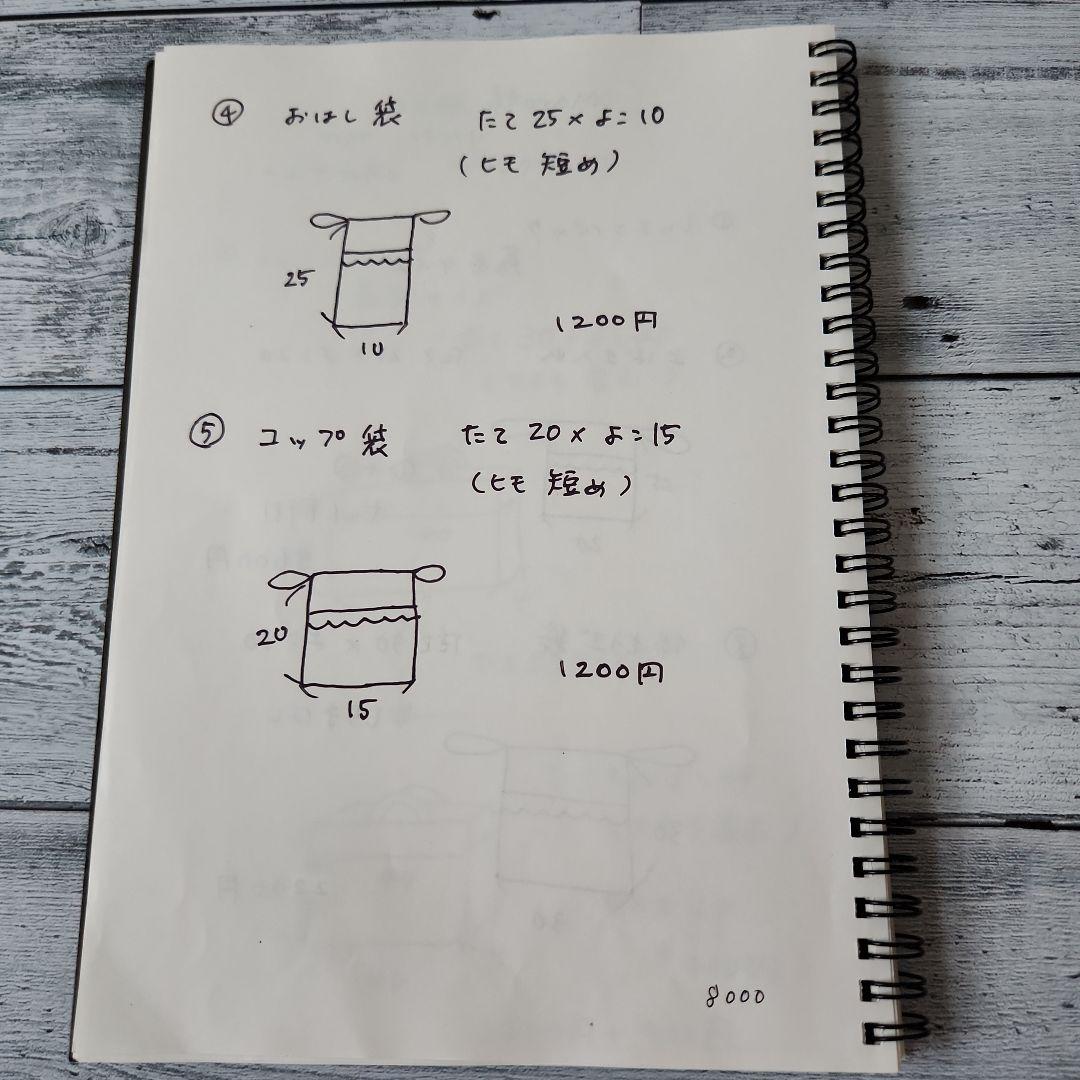 ④ おはし袋 たて25×よこ10
(ヒモ 短め)
25
10
1200円
⑤ コップ袋 たて20×よこ15
(ヒモ 短め)
20
15
1200円
8000